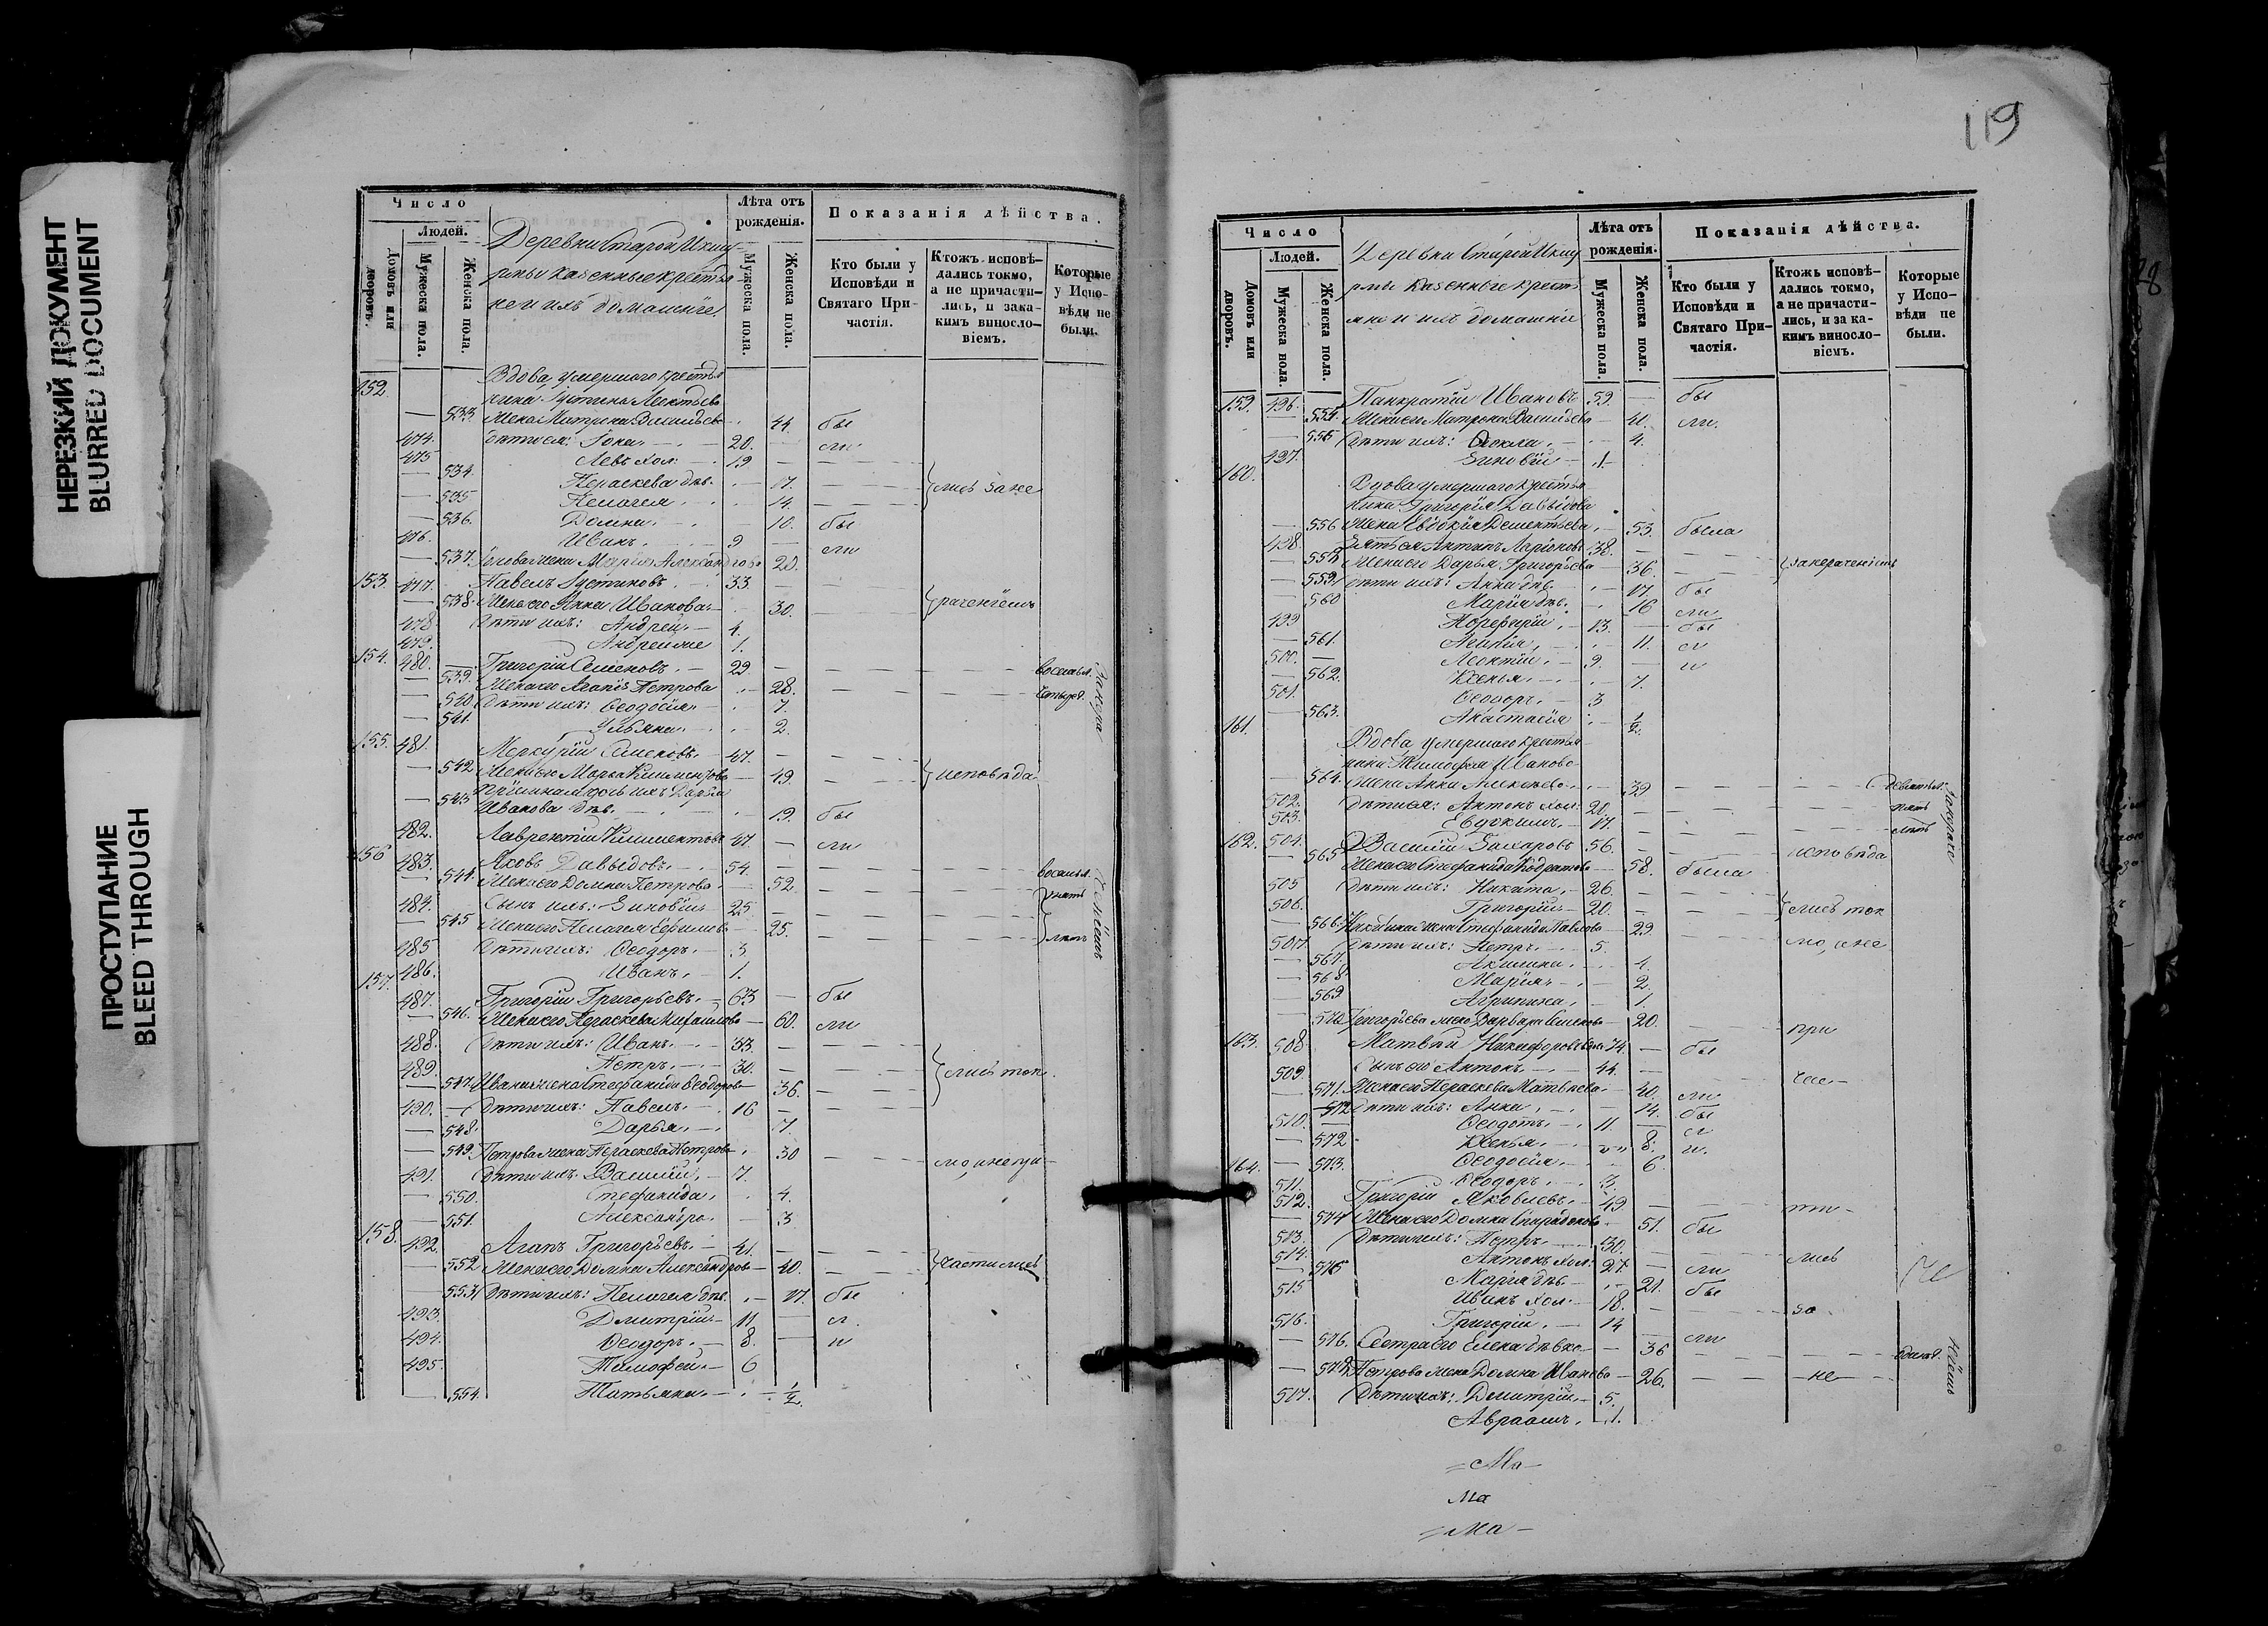 НЕРЕЗКИЙ ДОКУМЕНТ
BLURRED DOCUMENT
ПРОСТУПАНИЕ
BLEED THROUGH
119
Число
Людей.
Домовъ или дворовъ.
Мужеска пола.
Женска пола.
Деревни Старой Икшу-
рмы казенные крестья-
не и ихъ домашніе.
Лѣта отъ рожденія.
Мужеска пола.
Женска пола.
Показанія дѣйства.
Кто были у Исповѣди и Святаго Причастія.
Ктожъ исповѣдались токмо, а не причастились, и за какимъ винословіемъ.
Которые у Исповѣди не были.
152. Вдова умершаго крестья
нина Іустина Леонтьева
533. Жена Матрона Васильева 44. бы
474. Дѣти ея: Іона 20. ли
475 Левъ хол: 19
534. Параскева дѣв. 17. лись за не
535 Пелагея 14.
536. Домна 10. бы
476. Иванъ 9 ли
537. Іонова жена Марія Александрова 20.
153. 477. Павелъ Іустиновъ 33.
538. Жена его Анна Иванова 30. раченіемъ
478 Дѣти ихъ: Андрей 4.
479. Андрей же 1.
154. 480. Григорій Семеновъ 29
539. Жена его Агапія Петрова 28.
540. Дѣти ихъ: Ѳеодосія 7.
541. Ульяна 2.
155. 481. Меркурій Семеновъ 47.
542 Жена его Марѳа Климентова 49. исповѣда
543 Дарья
Иванова дѣв. 19. бы
482. Лаврентій Климентовъ 47. ли
156 483. Яковъ Давыдовъ 54.
544. Жена его Домна Петрова 52.
484. Сынъ ихъ: Зиновій 25
545 Жена его Пелагея Ефимова 25. лѣтъ
485 Дѣти ихъ: Ѳеодоръ 3
157. 486. Иванъ 1.
487. Григорій Григорьевъ 63 бы
546. Жена его Параскева Михайлова 60. ли
488. Дѣти ихъ: Иванъ 33.
489. Петръ 30. лись ток
547. Иванова жена Стефанида Ѳеодорова 36.
490. Дѣти ихъ: Павелъ 16
548. Дарья 7.
549. Петрова жена Параскева Петрова 30 мо, а не при
491. Дѣти ихъ: Василій 7.
550. Стефанида 4.
551. Александра 3
158. 492. Агапъ Григорьевъ 41.
552 Жена его Домна Александрова 40. частились
553. Дѣти ихъ: Пелагея дѣв. 17. бы
493. Дмитрій 11 л
494. Ѳеодоръ 8. и
495. Тимофей 6
554. Татьяна 1/2
Число
Людей.
Домовъ или дворовъ.
Мужеска пола.
Женска пола.
Деревни Старой Икшу
рмы казенные кресть
яне и ихъ домашніе
Лѣта отъ рожденія.
Мужеска пола.
Женска пола.
Показанія дѣйства.
Кто были у Исповѣди и Святаго Причастія.
Ктожъ исповѣдались токмо, а не причастились, и за какимъ винословіемъ.
Которые у Исповѣди не были.
159. 496. Панкратій Ивановъ 59. бы
554. Жена его Матрона Васильева 41. ли.
555 Дѣти ихъ: Ѳекла 4.
497. Зиновій 1
160. Вдова умершаго крестья
нина Григорія Давыдова
556 Жена Евдокія Дементьева 53. была
498. Зять ея Антипъ Ларіоновъ 38.
558 Жена его Дарья Григорьева 36. за нераченіемъ
559. Дѣти ихъ: Анна дѣв. 17. бы
560 Марія дѣв. 16 ли
499 Порфирій 13. бы
561. Агапія 11. л
500. Леонтій 9. и
562. Ксенья 7.
501. Ѳеодоръ 3
563. Анастасія 1/2
161. Вдова умершаго крестья
нина Тимофея Иванова
564. Жена Анна Алексеева 39
502. Дѣти ея: Антонъ хол: 20. пять
503. Евдокимъ 17. лѣтъ
162. 504. Василій Захаровъ 56. исповѣда
565 Жена его Стефанида Кодратова 58. была
505 Дѣти ихъ: Никита 26.
506. Григорій 20. лись ток
566. Никитина жена Стефанида Павлова 29
507. Дѣти ихъ: Петръ 5. мо, а не
567. Акилина 4.
568. Марія 2.
569 Агрипина 1
570 Григорьева жена Варвара Семенова 20. при
163. 508 Матвѣй Никифоровъ 74. бы
509. Сынъ его Антонъ 44. час
571. Жена его Параскева Матвѣева 40. ли
572 Дѣти ихъ: Анна 14. бы
510. Ѳеодотъ 11 л
572 Ксенья 8. и.
164. 573. Ѳеодосія 6.
511. Ѳеодоръ 3.
512. Григорій Яковлевъ 49. ти
574 Жена его Домна Спиридонова 51. бы
513. Дѣти ихъ: Петръ 30.
514. Антонъ хол: 27. ли лись
575 Марія дѣв. 21. бы
515 Иванъ хол. 18. за
516. Григорій 14 ли
576. Сестра его Елена дѣвка 36
577 Петрова жена Домна Иванова 26. не
517. Дѣти ихъ: Дмитрій 5.
Авраамъ 1.
Ма
ма
ма